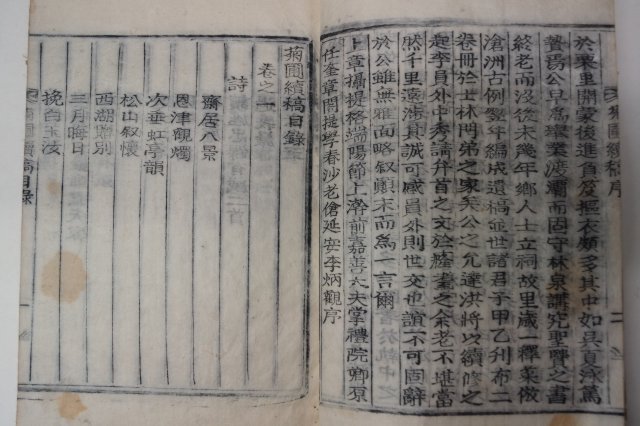 於栗里開蒙後進自笈摳衣頗多其中如吳夏泳篤
贄爲公早爲擧業渡灞而固守林泉講究聖賢之書
終老而沒未幾年鄉人士立祠故里歲一釋菜倣
滄洲古例翌年編成遺稿並世諸君子甲乙刋布二
卷冊於士林門弟之家矣公之允達洪將欲續修之
起李員外中秀諭弁首之文於癃耋之余老不堪當
然千里遠涉其誠可感員外則世交也誼不可固辭
於公雖無雅面略叙顛末而爲一言爾
上章攝提格端陽節上澣前嘉善大夫掌禮院卿原
任奎章閣提學春沙老傖延安李炳觀序
菊圃續稿序
二
菊圃續稿目錄
卷之一
詩
齋居八景
恩津觀燭
次垂虹亭韻
松山叙懷
西湖贈別
三月晦日
挽白玉汝
菊圃續稿目錄
一